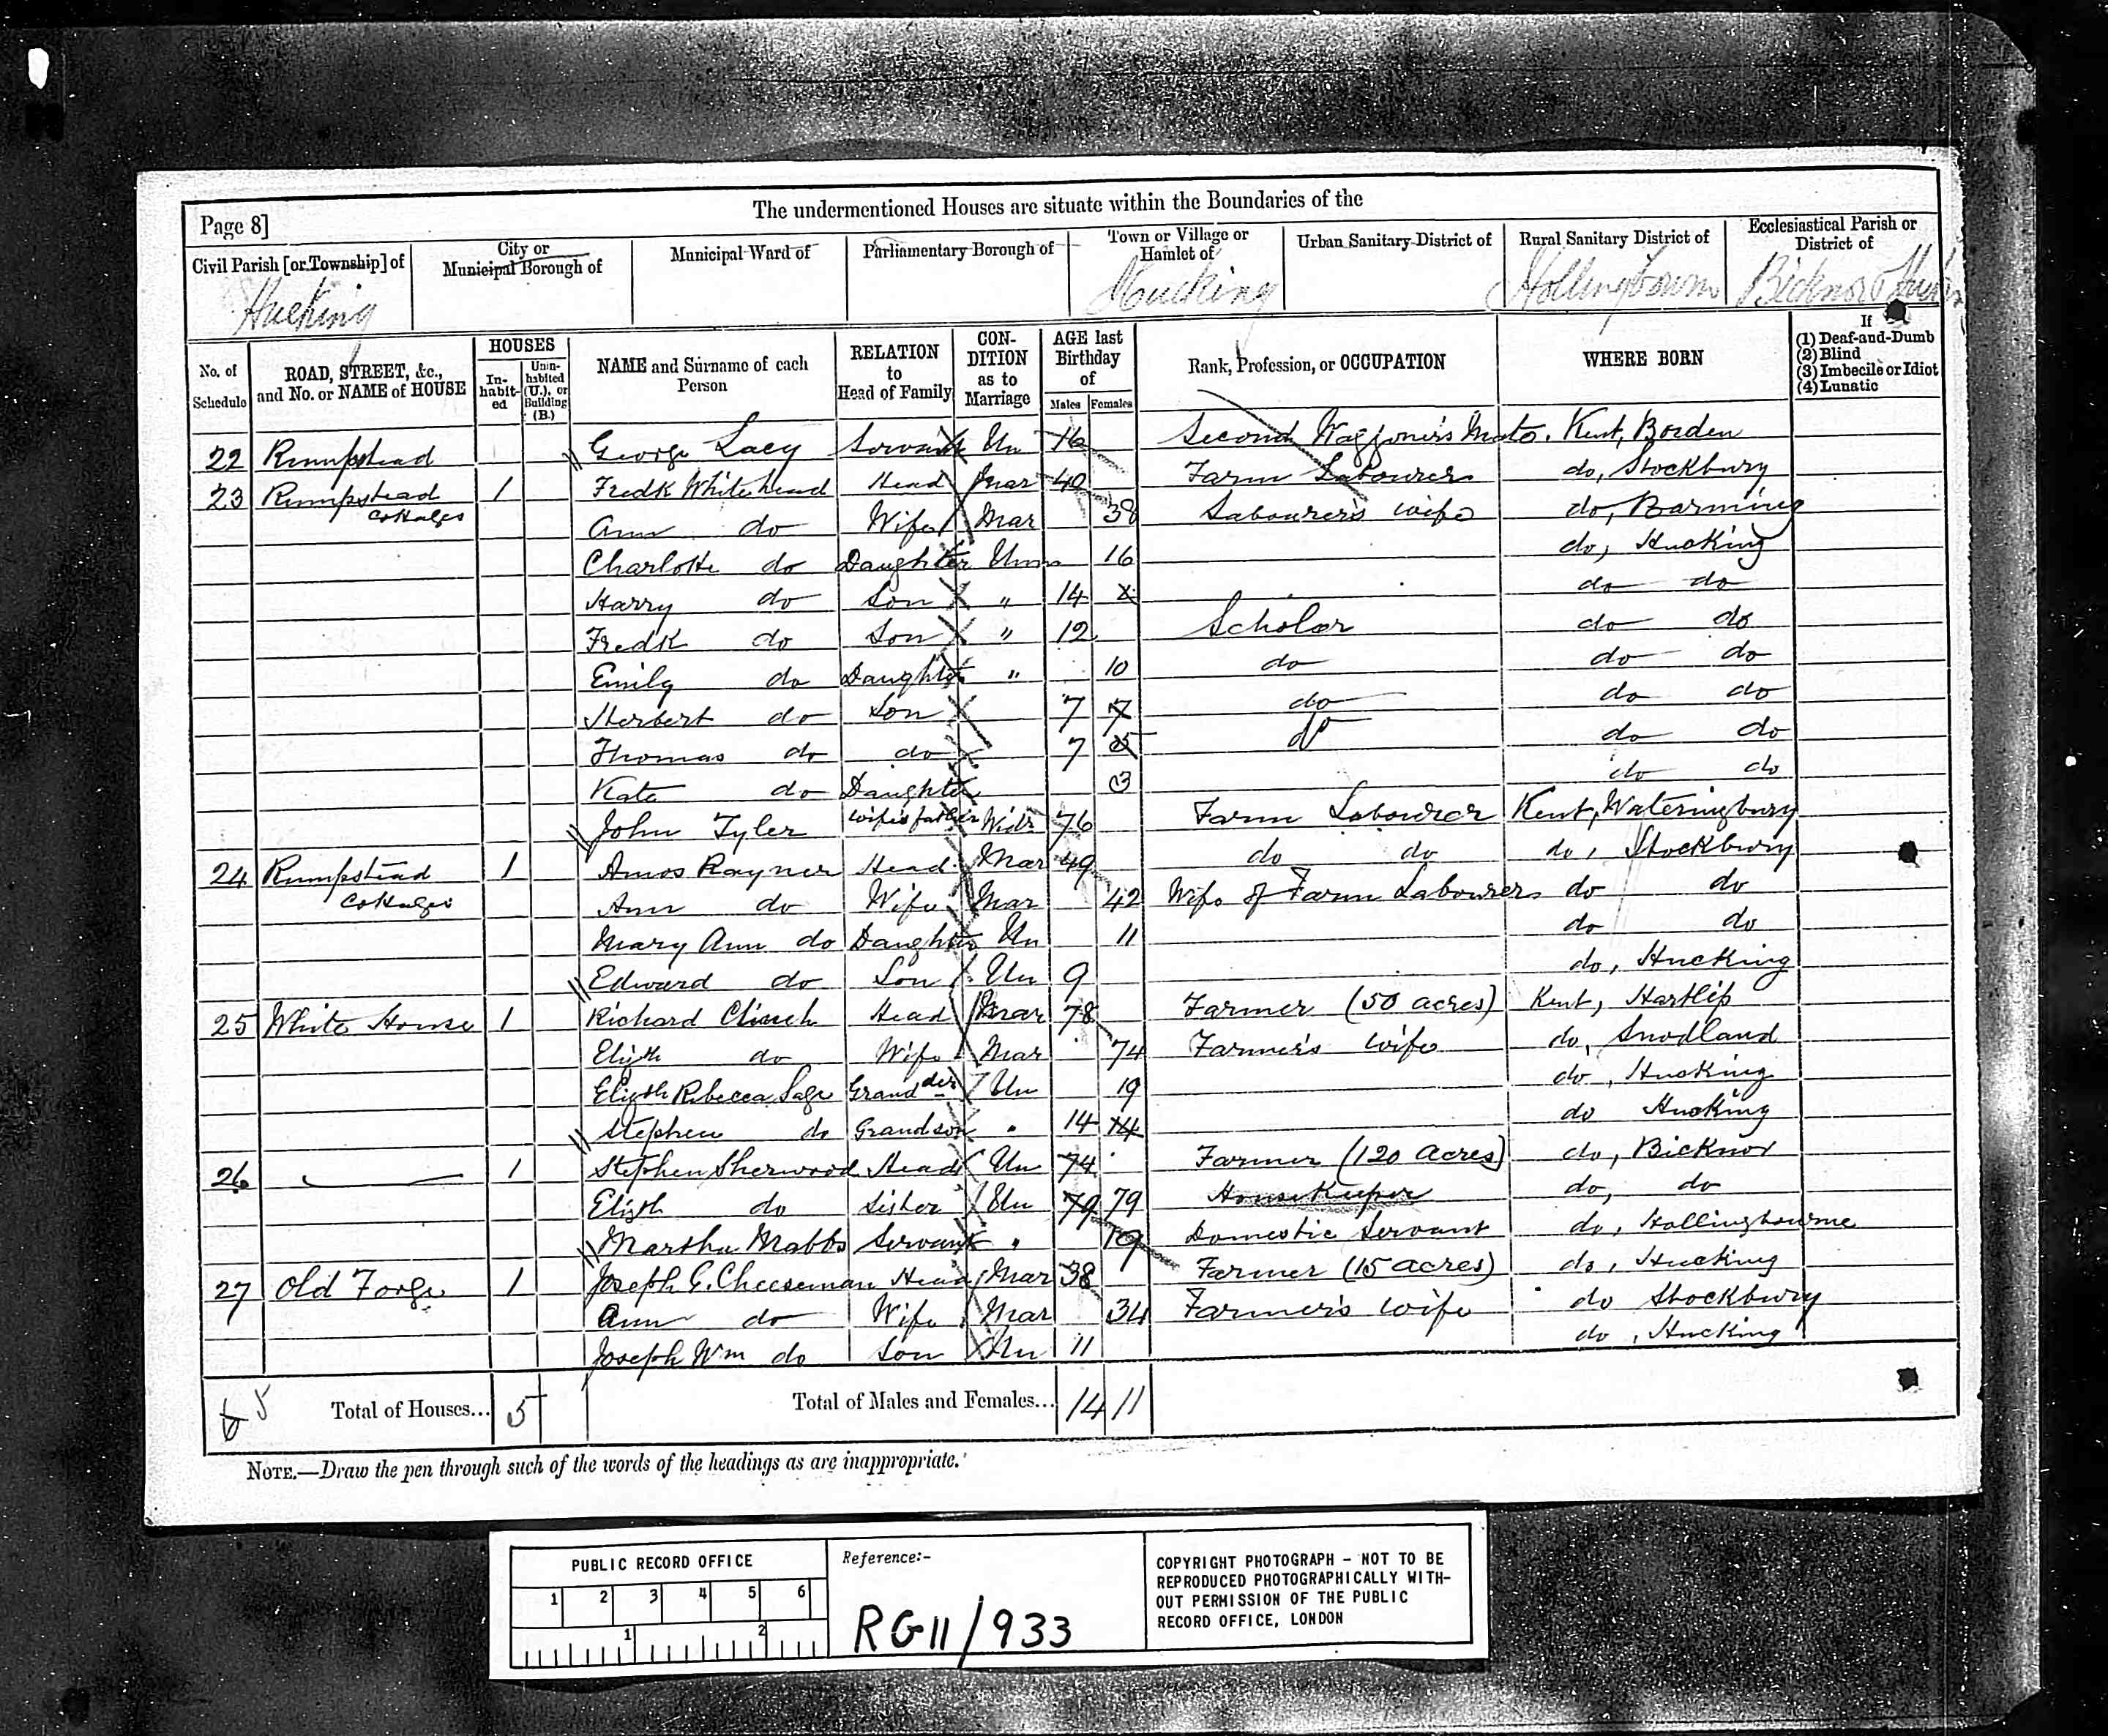 The undermentioned Houses are situate within the Boundaries of the
Page 8]
Civil Parish [or Township] of
City or Municipal Borough of
Municipal Ward of
Parliamentary Borough of
Town or Village or Hamlet of
Urban Sanitary District of
Rural Sanitary District of
Ecclesiastical Parish or District of
Hucking Hucking Hollingbourne Bicknor
No. of Schedule
ROAD, STREET, &c., and No. or NAME of HOUSE
HOUSES
In-habit-ed
Unin-habited (U.), or Building (B.)
NAME and Surname of each Person
RELATION to Head of Family
CON-DITION as to Marriage
AGE last Birthday of
Males Females
Rank, Profession, or OCCUPATION
WHERE BORN
If
(1) Deaf-and-Dumb
(2) Blind
(3) Imbecile or Idiot
(4) Lunatic
22 Rumpstead George Lacy Servant Un 16 Second Waggoner's Mate. Kent, Borden
23 Rumpstead Cottages 1 Fredk Whitehead Head Mar 40 Farm Labourer do, Stockbury
Ann do Wife Mar 38 Labourer's wife do, Barming
Charlotte do Daughter Unm 16 do, Hucking
Harry do Son " 14 do do
Fredk do Son " 12 Scholar do do
Emily do Daughter " 10 do do do
Herbert do Son 7 7 do do do
Thomas do do 7 5 do do do
Kate do Daughter 3 do do
John Tyler wife's father Widr 76 Farm Labourer Kent, Wateringbury
24 Rumpstead Cottages 1 Amos Rayner Head Mar 49 do do do, Stockbury
Ann do Wife Mar 42 Wife of Farm Labourers do do
Mary Ann do Daughter Un 11 do do
Edward do Son Un 9 do, Hucking
25 White House 1 Richard Clinch Head Mar 78 Farmer (50 acres) Kent, Hartlip
Elizth do Wife Mar 74 Farmer's wife do, Snodland
Elizth Rebecca Sage Grand dr Un 19 do, Hucking
Stephen do Grandson " 14 14 do Hucking
26 — 1 Stephen Sherwood Head Un 74 Farmer (120 acres) do, Bicknor
Elizth do Sister Un 79 79 Housekeeper do, do
Martha Mabbs Servant " 19 Domestic Servant do, Hollingbourne
27 Old Forge 1 Joseph G. Cheeseman Head Mar 38 Farmer (15 acres) do, Hucking
Ann do Wife Mar 34 Farmer's wife do Stockbury
Joseph Wm do Son Un 11 do, Hucking
6 5 Total of Houses... 5 Total of Males and Females... 14 11
NOTE.—Draw the pen through such of the words of the headings as are inappropriate.
PUBLIC RECORD OFFICE
1 2 3 4 5 6
1 2
Reference:-
RG11/933
COPYRIGHT PHOTOGRAPH - NOT TO BE
REPRODUCED PHOTOGRAPHICALLY WITH-
OUT PERMISSION OF THE PUBLIC
RECORD OFFICE, LONDON